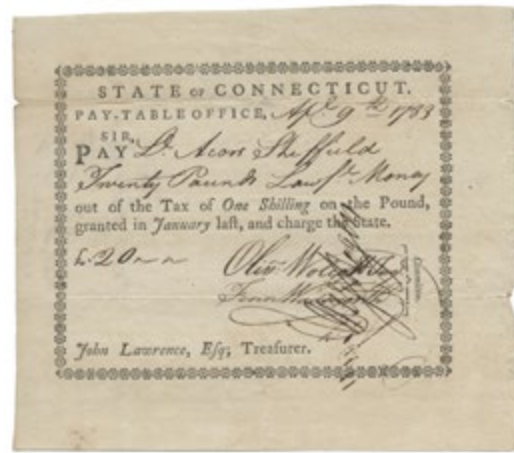 STATE OF CONNECTICUT.
PAY-TABLE OFFICE, Apl. 9th 1783
SIR,
PAY Lt. Acors Sheffield
Twenty Pounds Lawfl. Money
out of the Tax of One Shilling on the Pound,
granted in January last, and charge the State.
£.20
Olivr. Wolcott
John Lawrence, Esq; Treasurer.